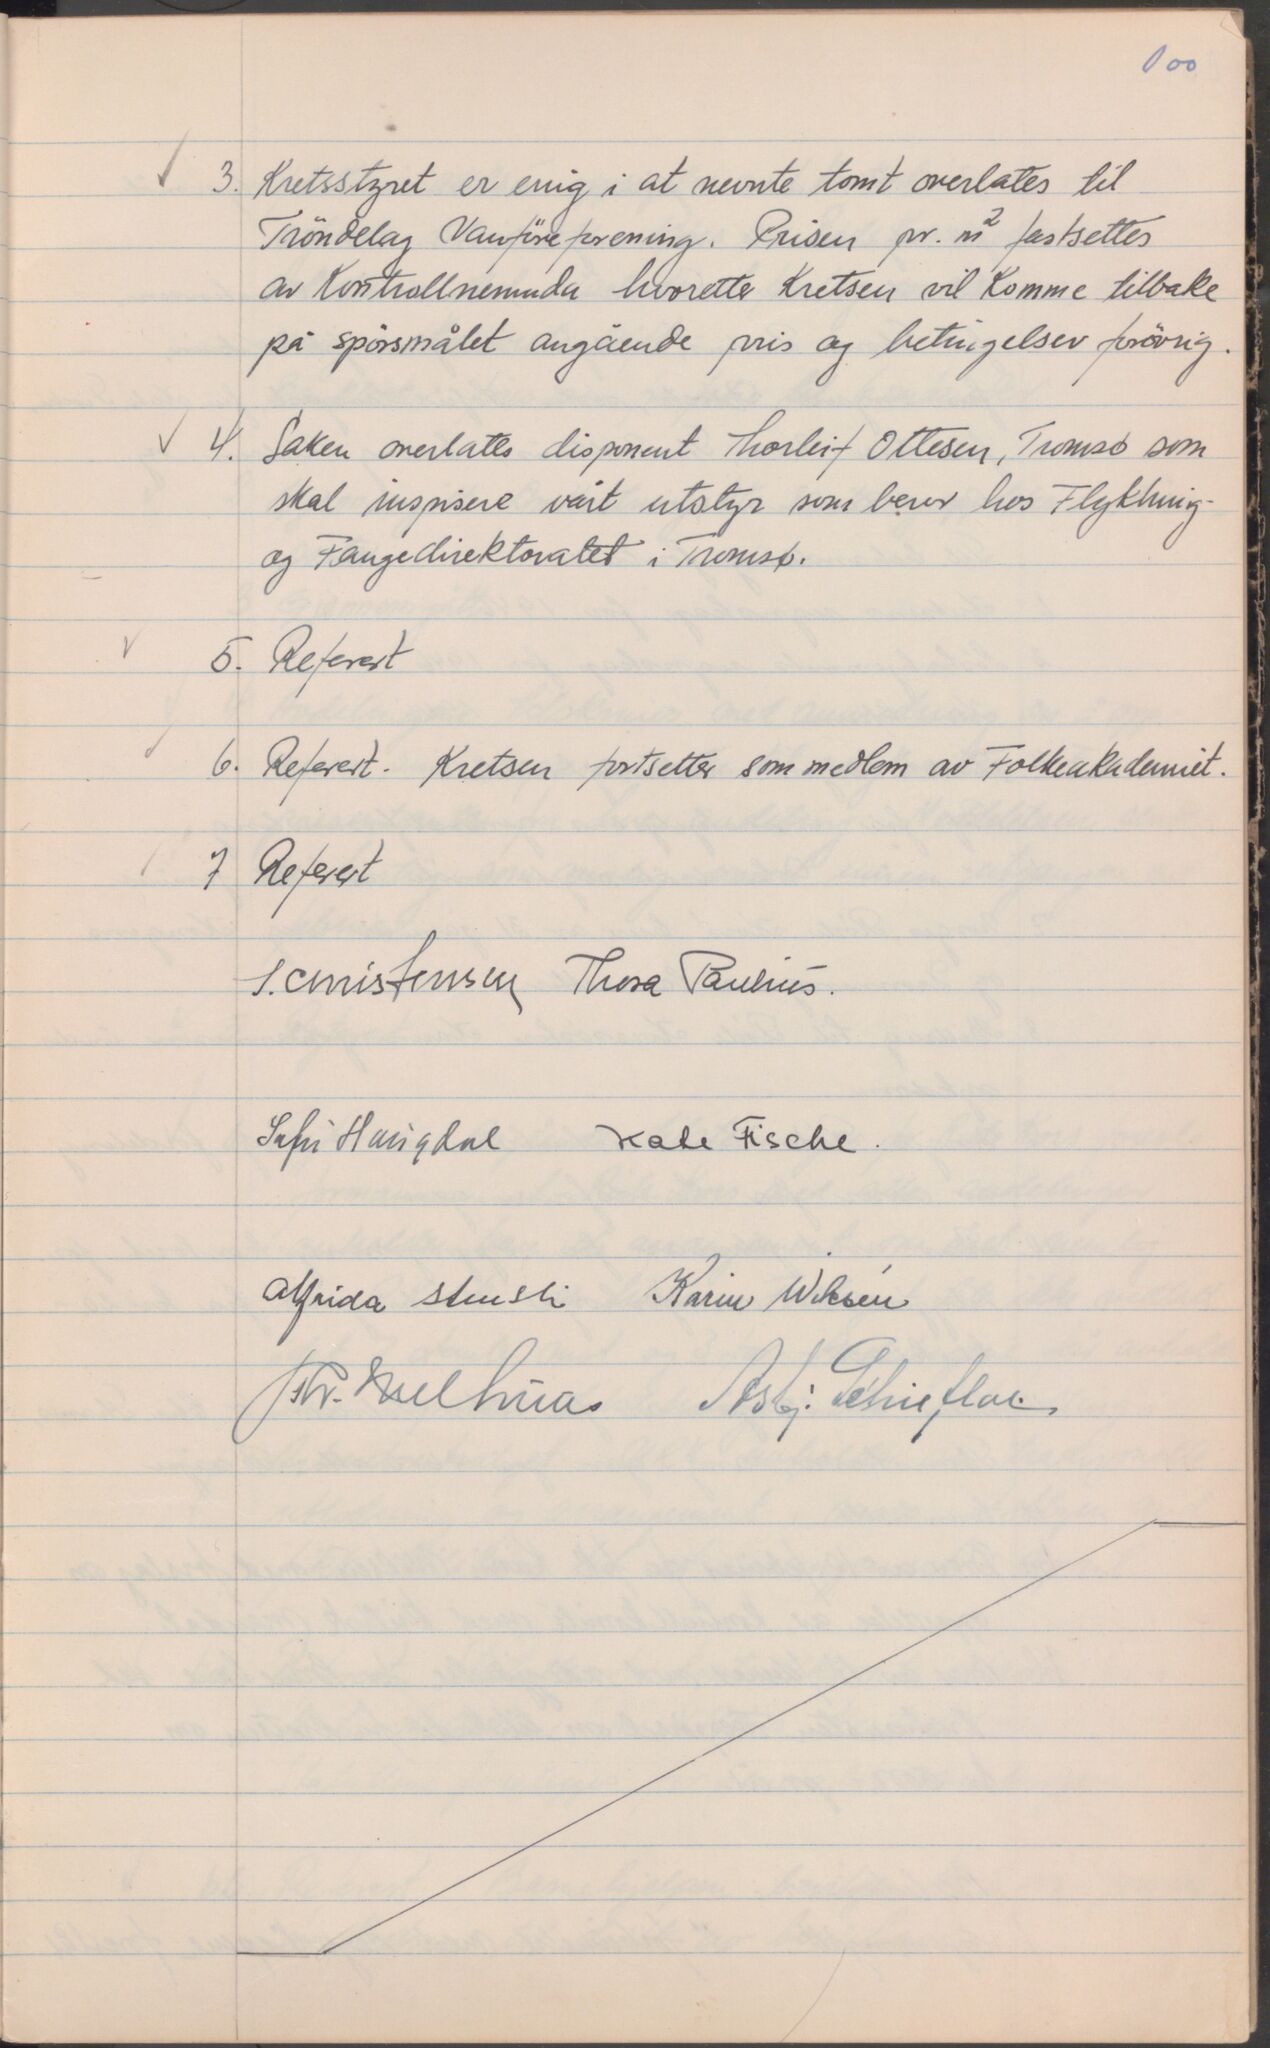 100
3. Kretsstyret er enig i at nevnte tomt overlates til
Tröndelag Vanföreforening. Prisen pr. m² fastsettes
av Kontrollnemnda hvoretter Kretsen vil komme tilbake
på spörsmålet angående pris og betingelser forövrig.
4. Saken overlates disponent Thorleif Ottesen, Tromsö som
skal inspisere vårt utstyr som beror hos Flyktning-
og Fangedirektoratet i Tromsø.
5. Referert
6. Referert. Kretsen fortsetter som medlem av Folkeakademiet.
7 Referert
S. Christensen Thora Paulius.
Haugdal Kate Fische.
Alfrida Stensli Karin
Asbj: